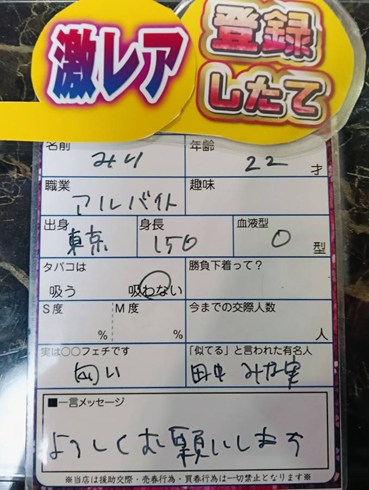 激レア
登録
したて
名前 みり 年齢 22 才
職業 アルバイト 趣味
出身 東京 身長 150 血液型 O 型
タバコは 勝負下着って?
吸う 吸わない
S度 M度 今までの交際人数
% % 人
実は○○フェチです 「似てる」と言われた有名人
匂い 田中 みな実
■一言メッセージ
よろしくお願いします
※当店は援助交際・売春行為・買春行為は一切禁止となります※